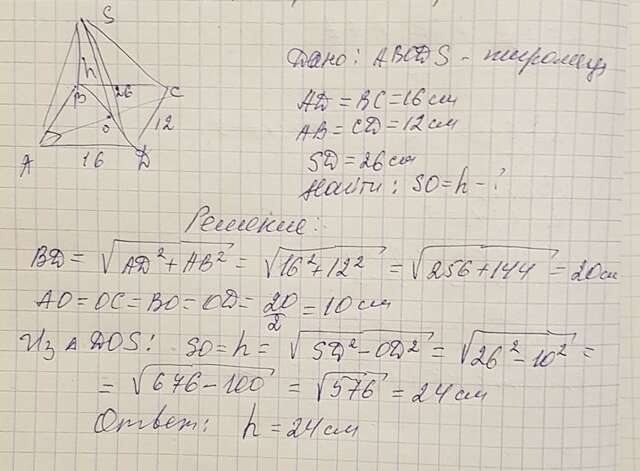 S
h
B
26
C
O
12
A
16
D
Дано: ABCDS - пирамида
AD = BC = 16 см
AB = CD = 12 см
SD = 26 см
Найти: SO = h - ?
Решение:
BD = √AD² + AB² = √16² + 12² = √256 + 144 = 20 см
AO = OC = BO = OD = 20/2 = 10 см
Из △ DOS: SO = h = √SD² - OD² = √26² - 10² =
= √676 - 100 = √576 = 24 см
Ответ: h = 24 см